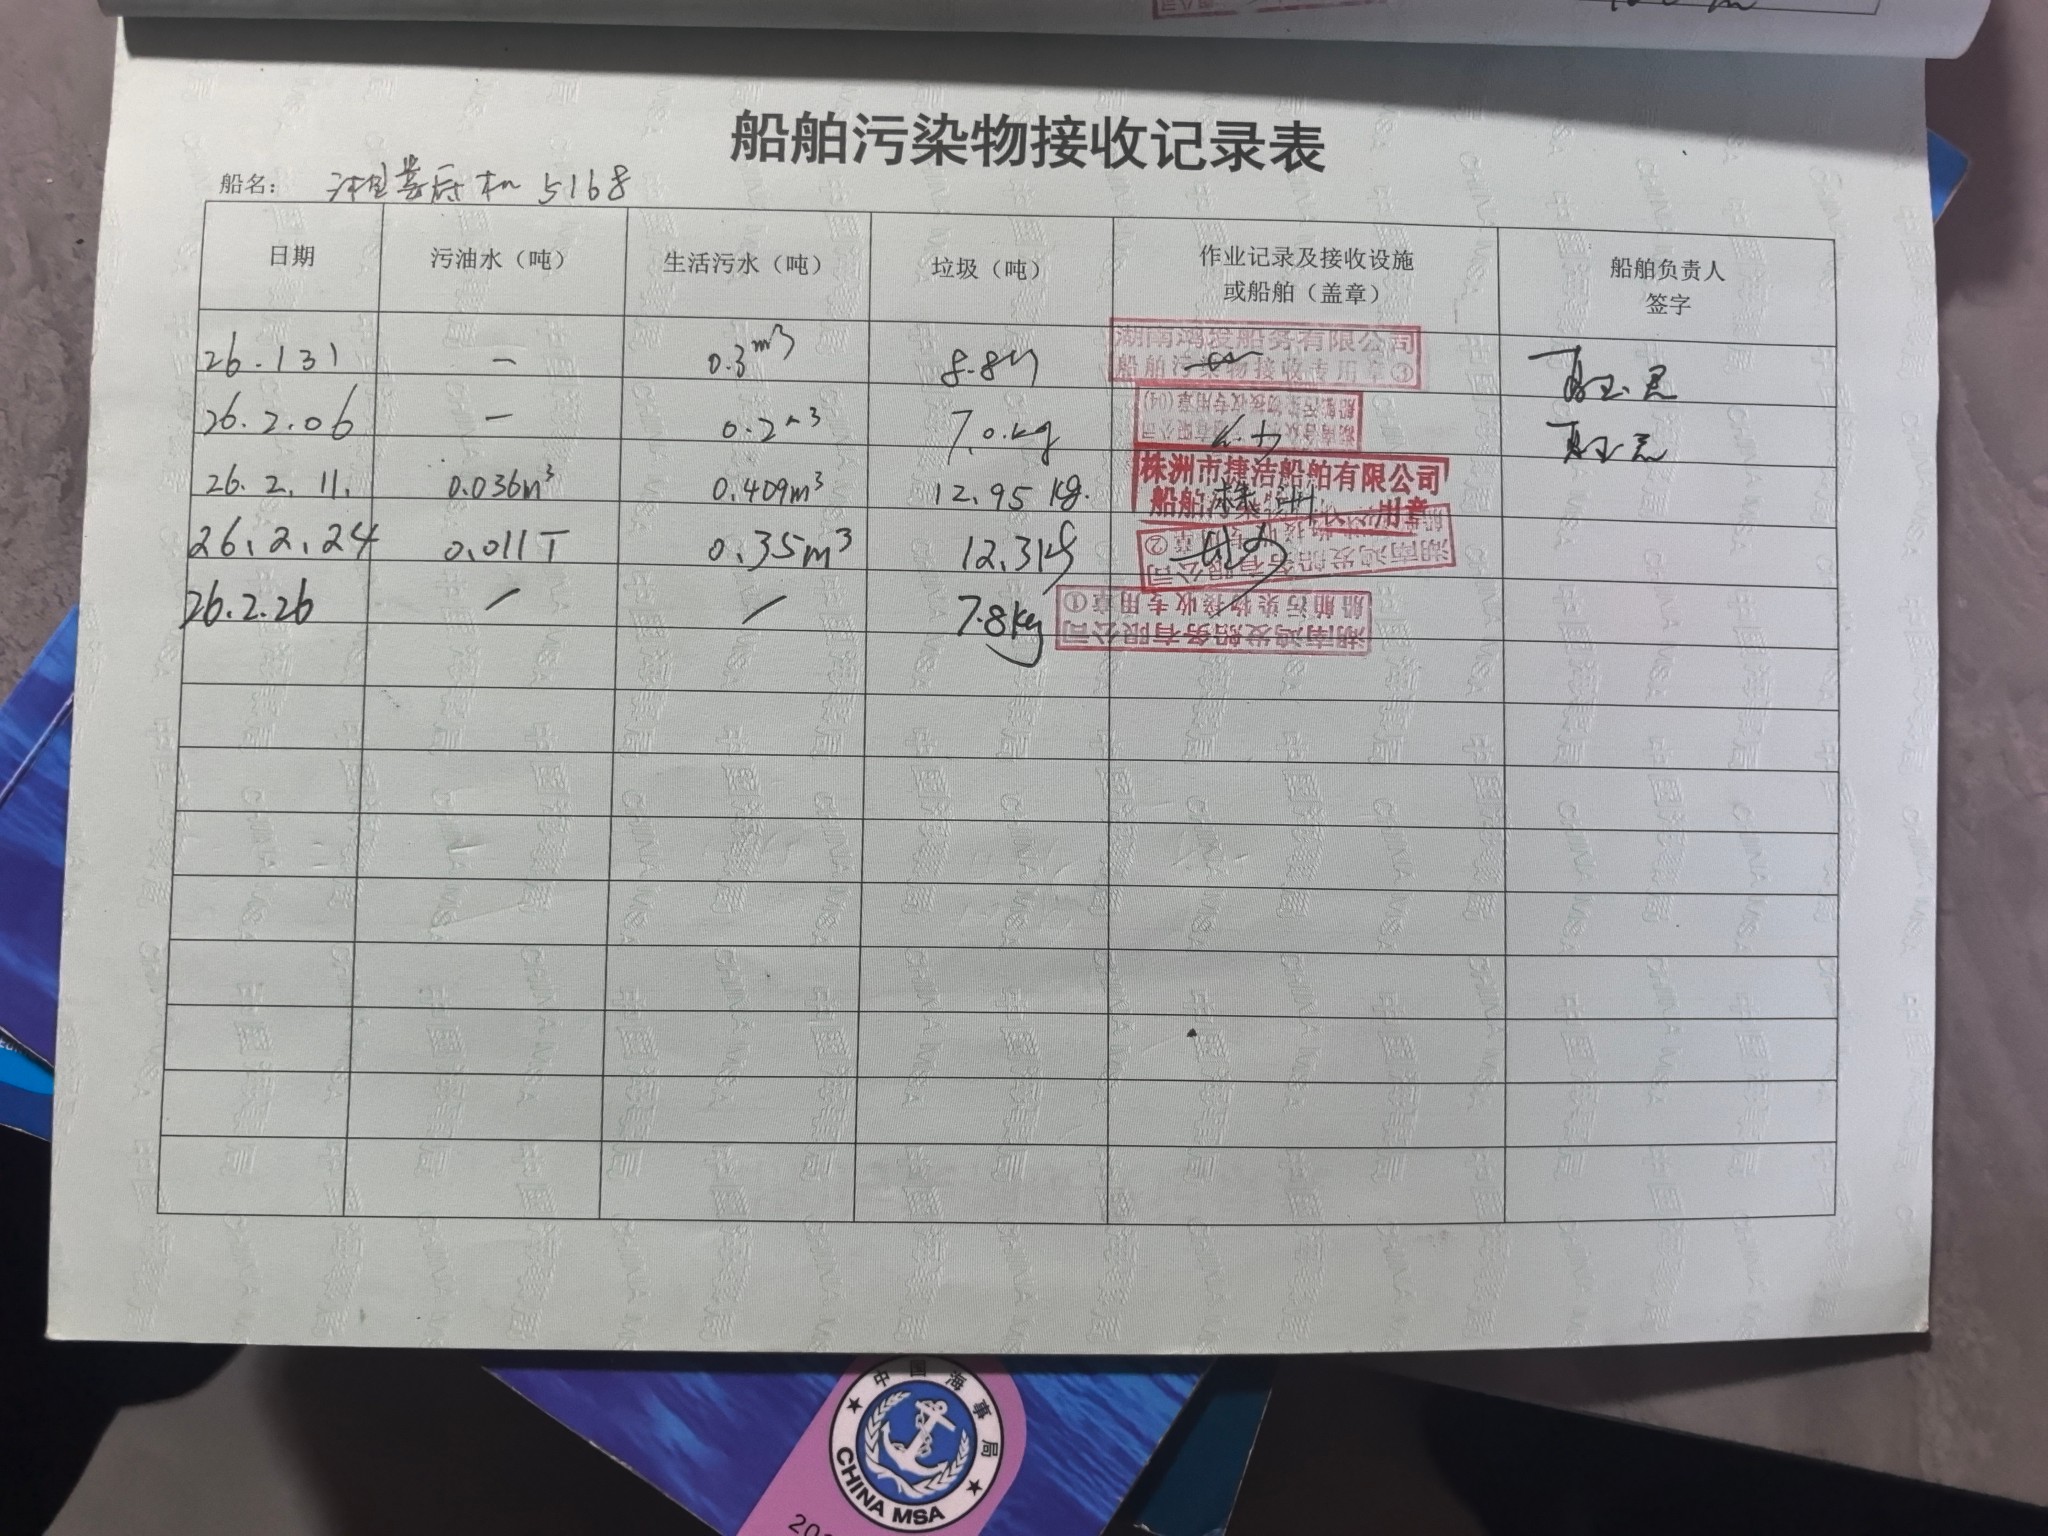 船舶污染物接收记录表
船名： 湘娄底机 5168
日期 污油水（吨） 生活污水（吨） 垃圾（吨） 作业记录及接收设施 或船舶（盖章） 船舶负责人 签字
26.131 — 0.3m3 8.8 湖南鸿发船务有限公司 船舶污染物接收专用章①
26.2.06 — 0.2m3 7.0kg 船舶污染物接收专用章(04)
26.2.11. 0.036m3 0.409m3 12.95 kg. 株洲市捷洁船舶有限公司 船舶污染 用章
26.2.24 0.011T 0.35m3 12.3kg 湖南鸿发船务有限公司 船舶污染物接收专用章②
26.2.26 / / 7.8kg 湖南鸿发船务有限公司 船舶污染物接收专用章①
中国海事局
CHINA MSA